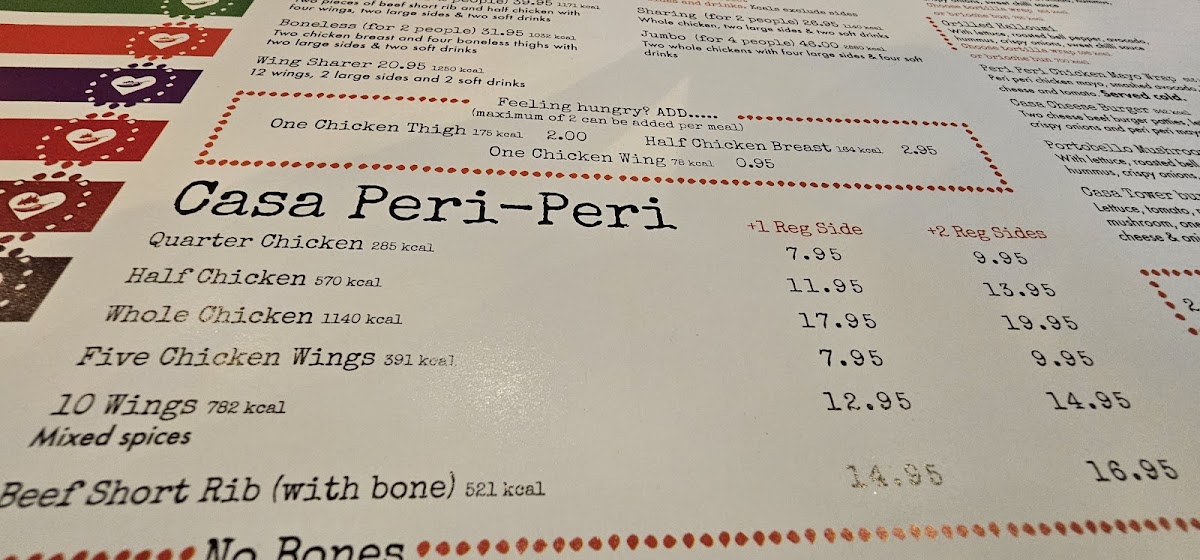 two pieces of beef short rib and half chicken with
four wings, two large sides & two soft drinks
39.95 1171 kcal
Boneless (for 2 people) 31.95 1032 kcal
Two chicken breast and four boneless thighs with
two large sides & two soft drinks
Wing Sharer 20.95 1250 kcal
12 wings, 2 large sides and 2 soft drinks
Sharing (for 2 people) 26.95 1140 kcal
Whole chicken, two large sides & two soft drinks
Jumbo (for 4 people) 46.00
Two whole chickens with four large sides & four soft
drinks
Feeling hungry? ADD.....
(maximum of 2 can be added per meal)
One Chicken Thigh 175 kcal 2.00
Half Chicken Breast 184 kcal 2.95
One Chicken Wing 78 kcal 0.95
Casa Peri-Peri
+1 Reg Side +2 Reg Sides
Quarter Chicken 285 kcal 7.95 9.95
Half Chicken 570 kcal 11.95 13.95
Whole Chicken 1140 kcal 17.95 19.95
Five Chicken Wings 391 kcal 7.95 9.95
10 Wings 782 kcal 12.95 14.95
Mixed spices
Beef Short Rib (with bone) 521 kcal 14.95 16.95
No Bones
Grilled Halloumi
With lettuce, roasted bell pepper, avocado,
hummus, crispy onions, sweet chilli sauce
Choose tortilla wrap
or brioche bun
Peri Peri Chicken Mayo Wrap
Peri peri chicken mayo, smashed avocado,
cheese and tomato. Served cold.
Casa Cheese Burger
Two cheese beef burger
crispy onions and peri peri
Portobello Mushroo
With lettuce, roasted bel
hummus, crispy onions,
Casa Tower bu
Lettuce, tomato,
mushroom, one
cheese & oni